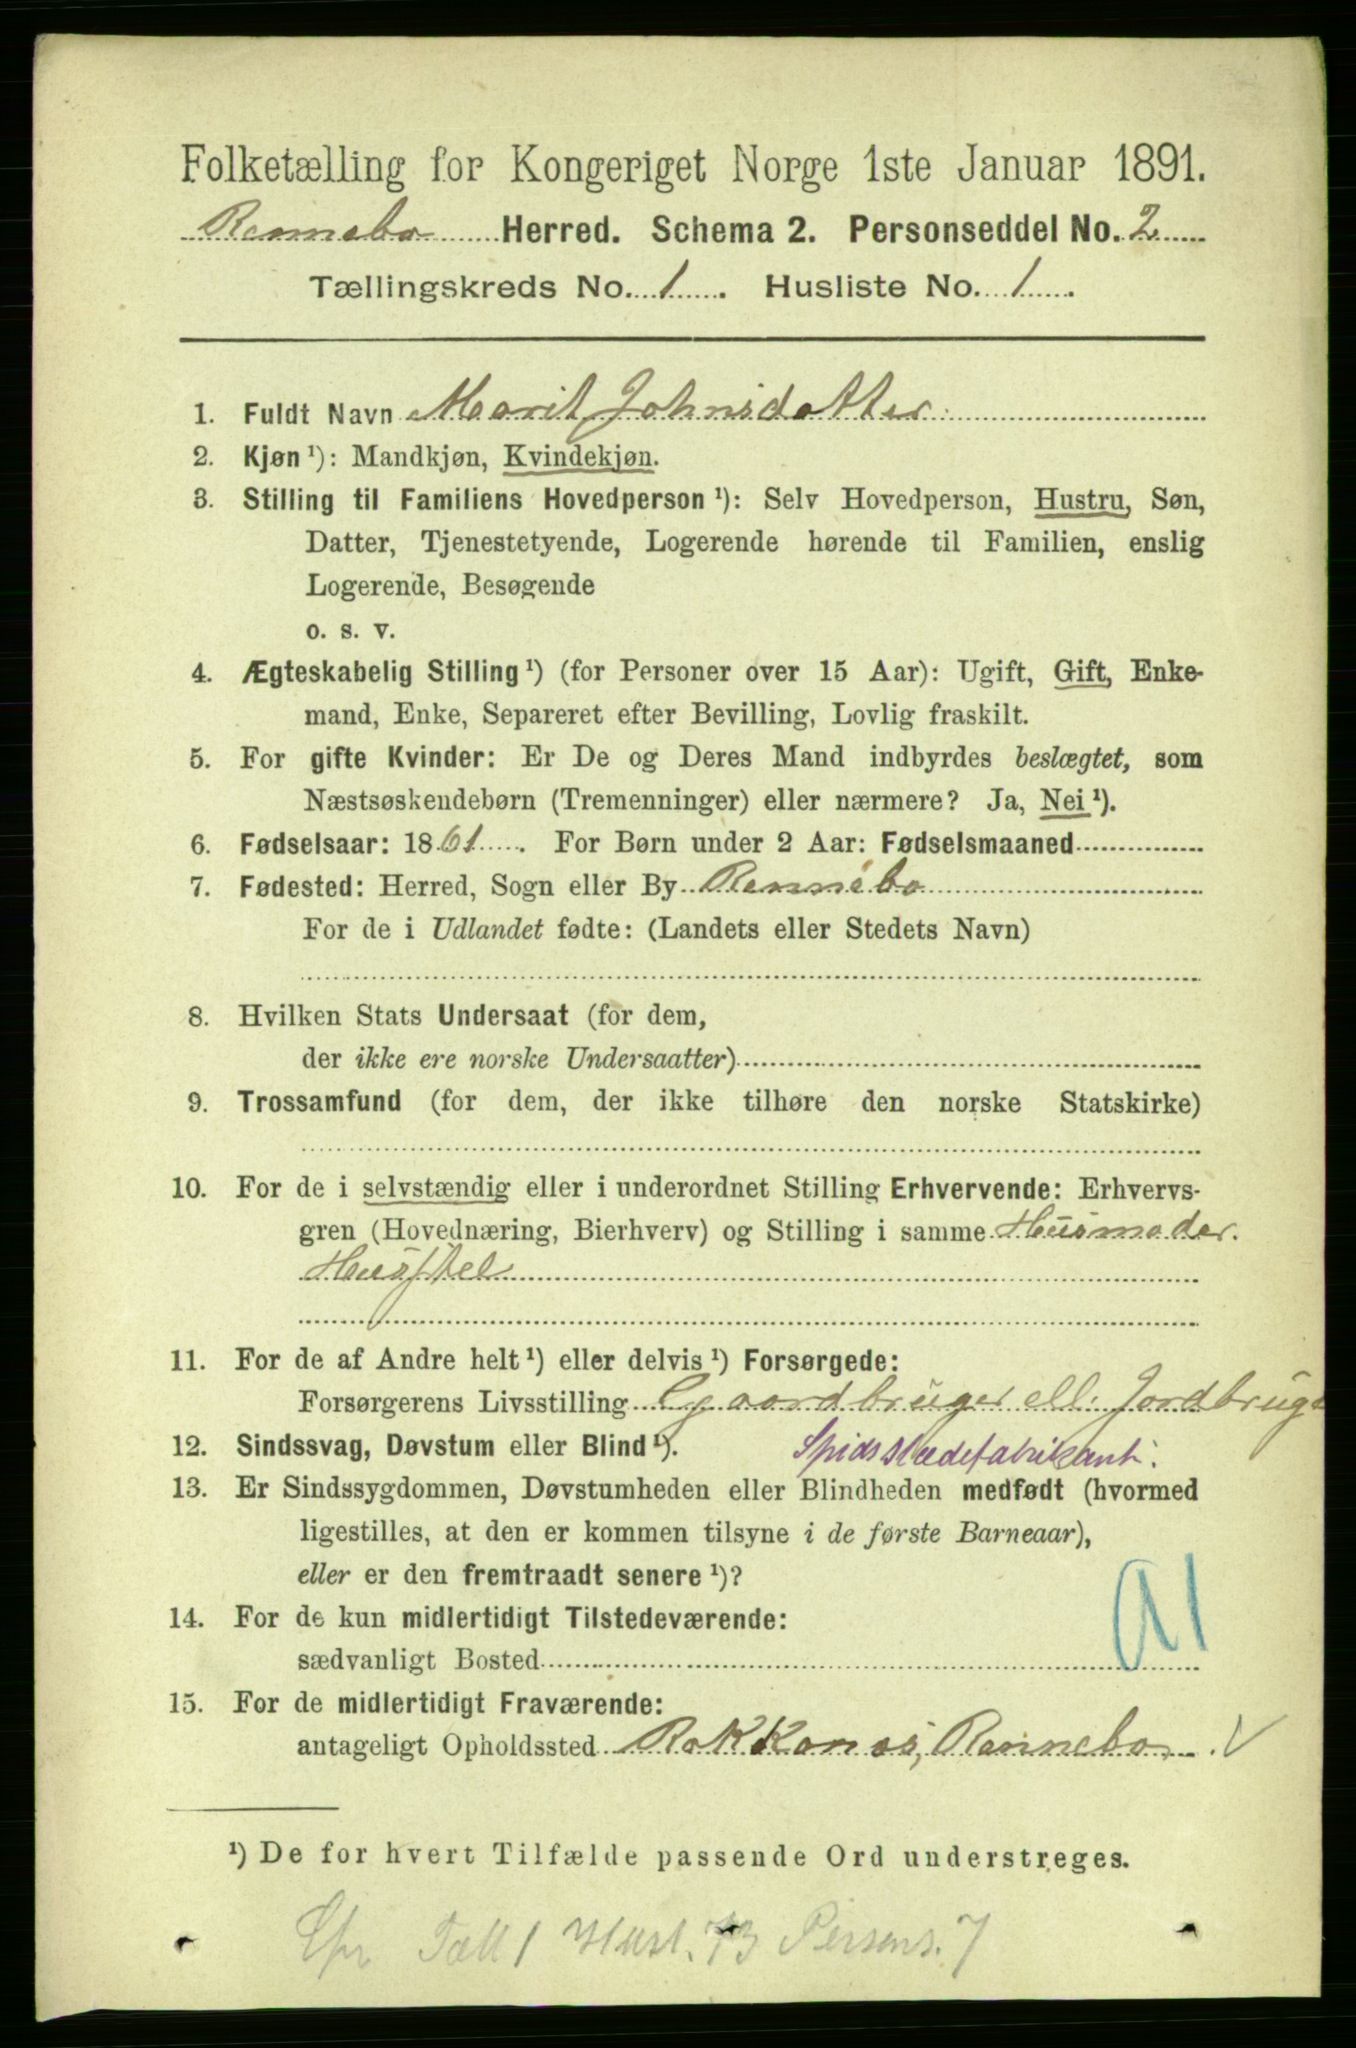 Folketælling for Kongeriget Norge 1ste Januar 1891.
Rennebo Herred. Schema 2. Personseddel No. 2
Tællingskreds No. 1. Husliste No. 1.
1. Fuldt Navn Marit Johnsdatter.
2. Kjøn ¹): Mandkjøn, Kvindekjøn.
3. Stilling til Familiens Hovedperson ¹): Selv Hovedperson, Hustru, Søn,
Datter, Tjenestetyende, Logerende hørende til Familien, enslig
Logerende, Besøgende
o. s. v.
4. Ægteskabelig Stilling ¹) (for Personer over 15 Aar): Ugift, Gift, Enke-
mand, Enke, Separeret efter Bevilling, Lovlig fraskilt.
5. For gifte Kvinder: Er De og Deres Mand indbyrdes beslægtet, som
Næstsøskendebørn (Tremenninger) eller nærmere? Ja, Nei ¹).
6. Fødselsaar: 1861. For Børn under 2 Aar: Fødselsmaaned
7. Fødested: Herred, Sogn eller By Rennebo
For de i Udlandet fødte: (Landets eller Stedets Navn)
8. Hvilken Stats Undersaat (for dem,
der ikke ere norske Undersaatter)
9. Trossamfund (for dem, der ikke tilhøre den norske Statskirke)
10. For de i selvstændig eller i underordnet Stilling Erhvervende: Erhvervs-
gren (Hovednæring, Bierhverv) og Stilling i samme Husmoder.
Husstel
11. For de af Andre helt ¹) eller delvis ¹) Forsørgede:
Forsørgerens Livsstilling Gaardbruger ell. Jordbruge
12. Sindssvag, Døvstum eller Blind ¹). Spidsslædefabrikant.
13. Er Sindssygdommen, Døvstumheden eller Blindheden medfødt (hvormed
ligestilles, at den er kommen tilsyne i de første Barneaar),
eller er den fremtraadt senere ¹)?
14. For de kun midlertidigt Tilstedeværende:
sædvanligt Bosted
A1
15. For de midlertidigt Fraværende:
antageligt Opholdssted Rokkones, Rennebo. V
¹) De for hvert Tilfælde passende Ord understreges.
Tæll 1 Husl. 73 Persons. 7